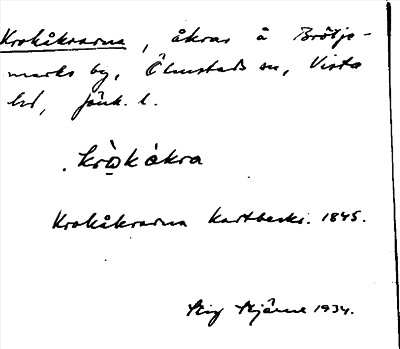 Krokåkrarna, åkrar å Brötje-
marks by, Ölmstads sn, Vista
hd, Jönk. l.
krò̱kåkra
Krokåkrarna Kartbeskr. 1845.
Stig Hjärne 1934.